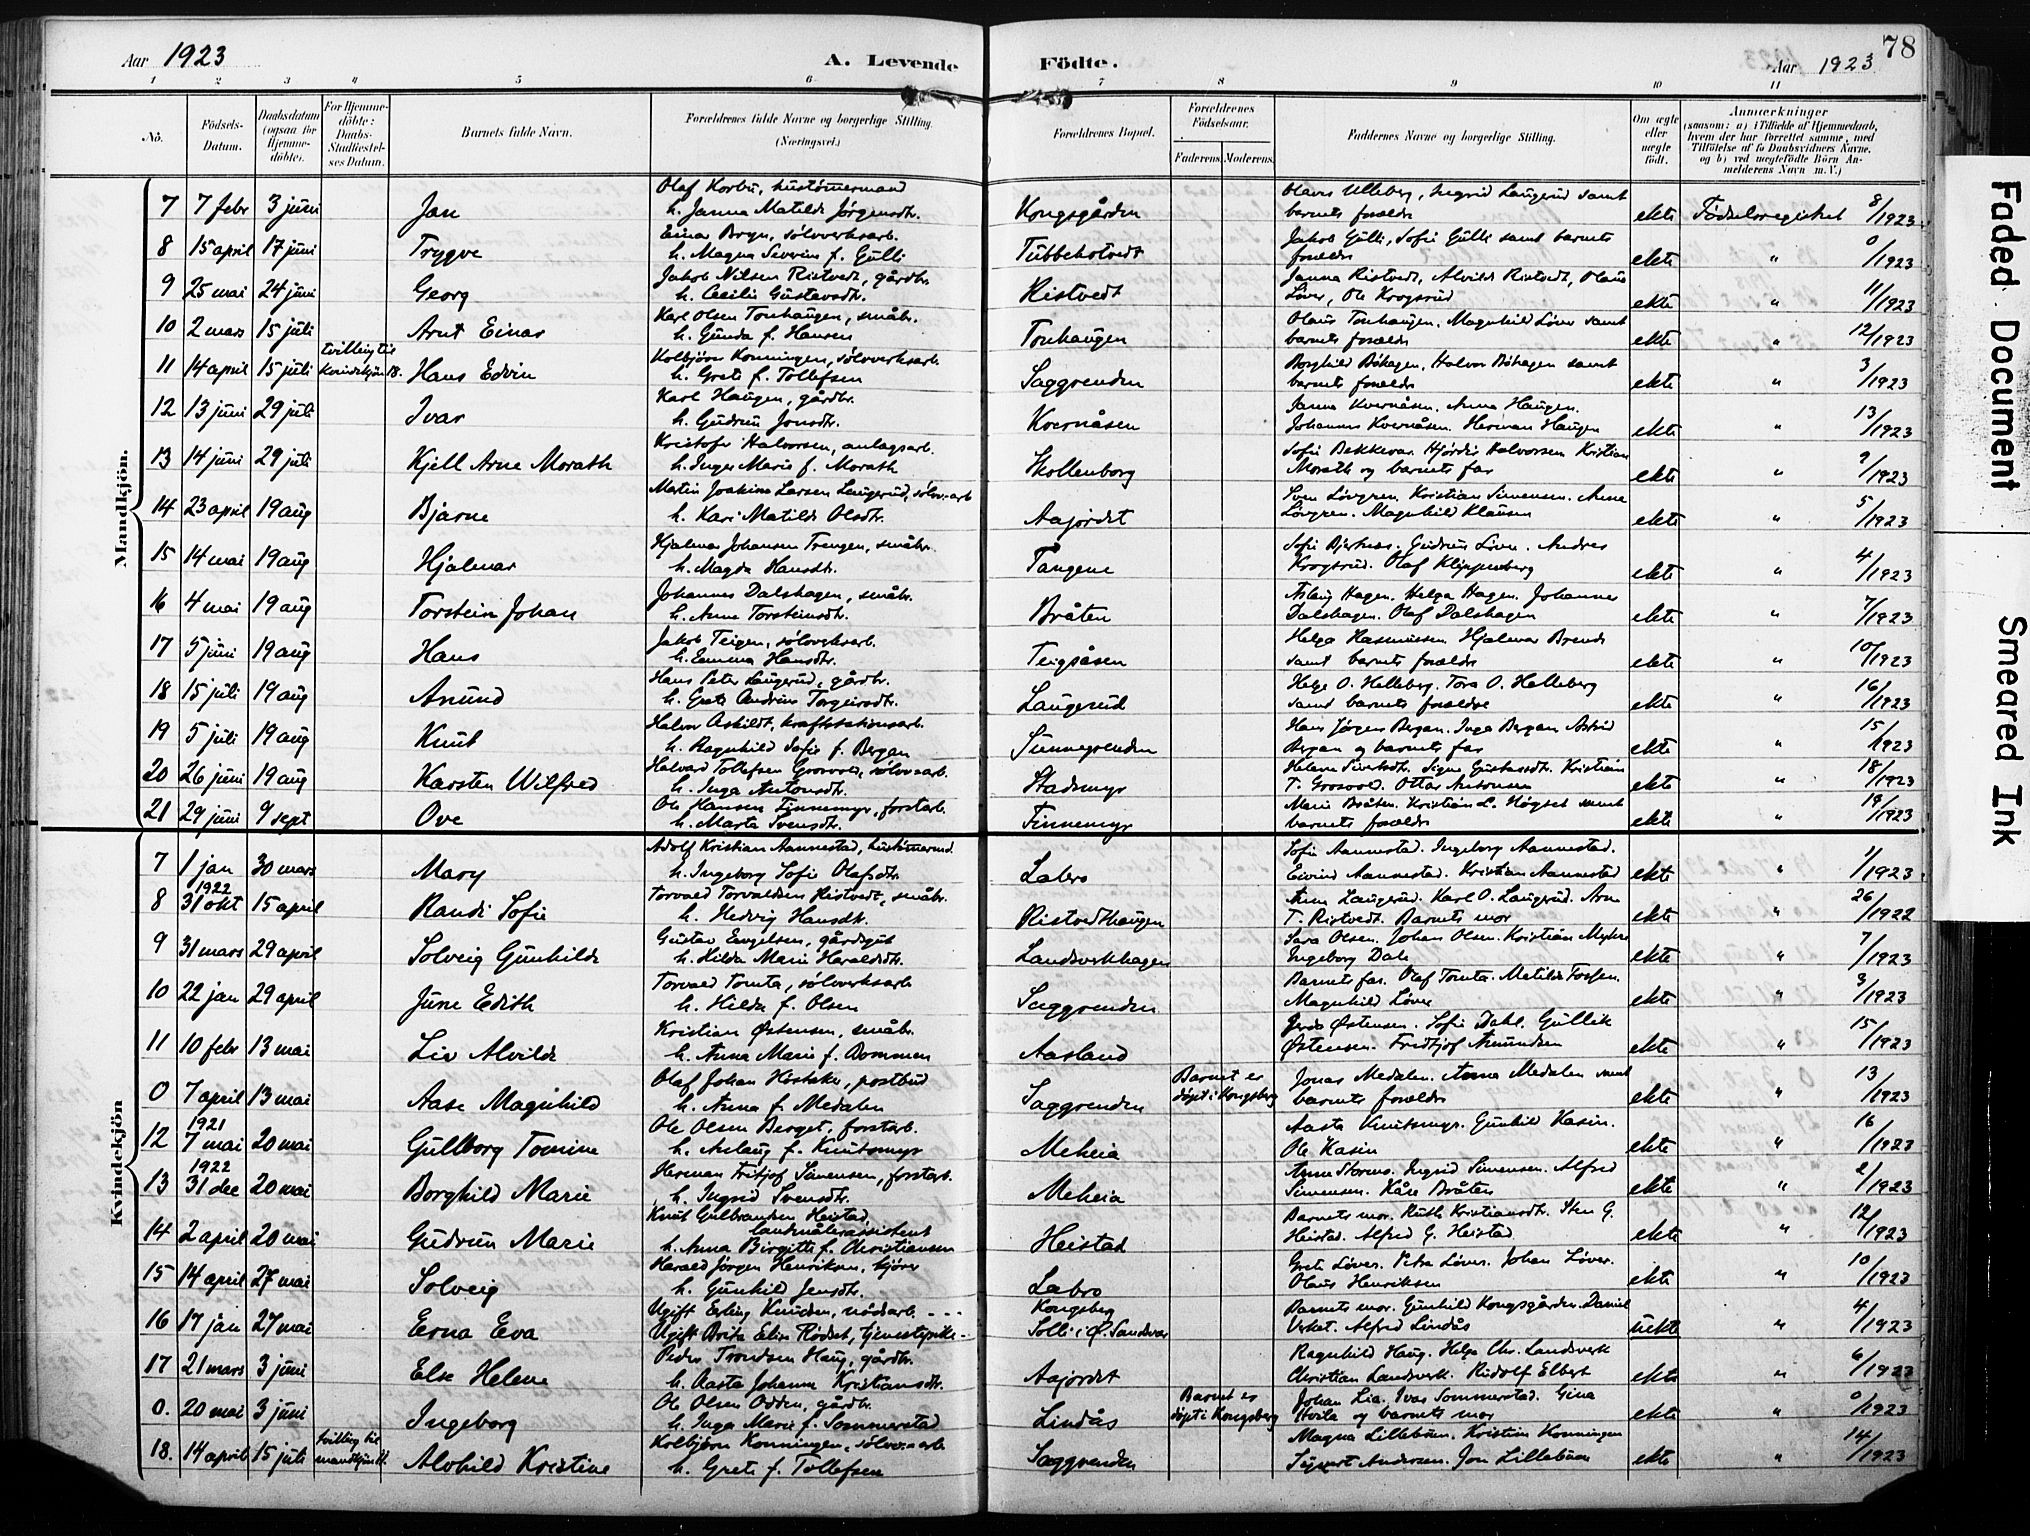 Aar 1923
A. Levende Födte.
Aar 1923
78
1 2 3 4 5 6 7 8 9 10 11
No.
Födsels-Datum.
Daabsdatum (ogsaa for Hjemme-döbte).
For Hjemme-döbte: Daabs-Stadfæstel-ses Datum.
Barnets fulde Navn.
Forældrenes fulde Navne og borgerlige Stilling. (Næringsvei.)
Forældrenes Bopæl.
Forældrenes Födselsaar.
Faderens. Moderens.
Faddernes Navne og borgerlige Stilling.
Om ægte eller uægte födt.
Anmærkninger
(saasom: a) i Tilfælde af Hjemmedaab, hvem der har forrettet samme, med Tilföielse af to Daabsvidners Navne. og b) ved uægtefödte Börn An-melderens Navn m. V.)
Mandkjön.
7 7 febr 3 juni Jan
Olaf Korbu, hustømermand
h. Janna Matilde Jørgensdtr.
Kongsgården
Olava Ulleberg, Ingrid Laugerud samt
barnets forældre
ekte Fødselsregistret 8/1923
8 15 april 17 juni Trygve
Einar Bryn, sølvverksarb.
h. Magna Severine f. Gulli
Tubbeholvedt
Jakob Gulli, Sofie Gulli samt barnets
forældre
ekte " 0/1923
9 25 mai 24 juni Georg
Jakob Nilsen Ristvedt, gårdbr.
h. Cecilie Gustavsdtr.
Ristvedt
Janna Ristvedt, Alvilde Ristvedt, Olaus
Løver, Ole Krogsrud
ekte " 11/1923
10 2 mars 15 juli Arnt Einar
Karl Olsen Tonhaugen, småbr.
h. Gunda f. Hansen
Tonhaugen
Olaus Tonhaugen. Magnhild Løver samt
barnets forældre
ekte " 12/1923
11 14 april 15 juli tvilling til kvindekjøn 18. Hans Edvin
Kolbjørn Konningen, sølvverksarb.
h. Grete f. Tollefsen
Saggrenden
Borghild Bøhagen, Halvor Bøhagen samt
barnets forældre
ekte 3/1923
12 13 juni 29 juli Ivar
Karl Haugen, gårdbr.
h. Gudrun Jonsdtr.
Kvernåsen
Janna Kvernåsen. Anna Haugen.
Johannes Kvernåsen. Herman Haugen
ekte " 13/1923
13 14 juni 29 juli Kjell Arne Morath
Kristofer Halvorsen, anlagsarb.
h. Inger Marie f. Morath
Skollenborg
Sofie Bekkevar. Hjørdis Halvorsen Kristian
Morath og barnets far
ekte " 9/1923
14 23 april 19 aug Bjarne
Martin Joakim Larsen Laugerud, sølvv.arb
h. Kari Matilde Olsdtr.
Aajordet
Sven Løvgren. Kristian Simensen. Anna
Løvgren. Magnhild Klausen
ekte " 5/1923
15 14 mai 19 aug Hjalmar
Hjalmar Johansen Trengen, småbr.
h. Magda Hansdtr.
Tangene
Sofie Bjerknes. Gudrun Løver. Andres
Krogsrud. Olaf Klippenberg
ekte " 4/1923
16 4 mai 19 aug Torstein Johan
Johannes Dalshagen, småbr.
h. Anne Torsteinsdtr.
Bråten
Aslaug Hagen. Helga Hagen. Johannes
Dalshagen. Olaf Dalshagen
ekte " 7/1923
17 5 juni 19 aug Hans
Jakob Teigen, sølvverksarb.
h. Emma Hansdtr.
Teigsåsen
Helga Rasmussen Hjalmar Brende
samt barnets forældre
ekte " 10/1923
18 15 juli 19 aug Anund
Hans Peter Laugerud, gårdbr.
h. Grete Andrine Torgeirsdtr.
Laugerud
Helge O. Helleberg. Tora O. Helleberg
samt barnets forældre
ekte " 16/1923
19 5 juli 19 aug Knut
Halvor Askildt, kraftstationsarb.
h. Ragnhild Sofie f. Bergan
Sunnegrenden
Hans Jørgen Bergan. Inga Bergan Astrid
Bergan og barnets far
ekte " 15/1923
20 26 juni 19 aug Karsten Wilfred
Halvard Tollefsen Grosvold, sølvv.arb.
h. Inga Antonsdtr.
Stadsmyr
Helene Sivertsdtr. Signe Gustavsdtr. Kristian
T. Grosvold. Ottar Antonsen
ekte " 18/1923
21 29 juni 9 sept Ove
Ole Hansen Finnemyr, forstarb.
h. Marta Svensdtr.
Finnemyr
Marie Bråten. Kristian L. Høgset samt
barnets forældre
ekte " 19/1923
Kvindekjön
7 1 jan 30 mars Mary
Adolf Kristian Aannestad, hustømermd.
h. Ingeborg Sofie Olafsdtr.
Labro
Sofie Aannestad. Ingeborg Aannestad.
Eivind Aannestad. Kristian Aannestad
ekte " 1/1923
8 1922 31 okt 15 april Randi Sofie
Torvald Torvaldsen Ristvedt, småbr.
h. Hedvig Hansdtr.
Ristvedthaugen
Anna Laugerud. Karl O. Laugerud. Arne
T. Ristvedt. Barnets mor
ekte " 26/1922
9 31 mars 29 april Solveig Gunhilde
Gustav Engelsen, gårdsgut
h. Hilda Marie Haraldsdtr.
Landsverkhagen
Sara Olsen. Johan Olsen. Kristian Myhre
Ingeborg Dale
ekte " 7/1923
10 22 jan 29 april June Edith
Torvald Tomta, sølvverksarb
h. Hilda f. Olsen
Saggrenden
Barnets far. Olaf Tomta. Matilde
Magnhild Løver
ekte " 3/1923
11 10 febr 13 mai Liv Alvilde
Kristian Østensen, småbr.
h. Anna Marie f. Bommen
Aasland
Gerda Østensen. Sofie Dahl. Gullik
Østensen. Fridtjof Amundsen
ekte " 15/1923
0 7 april 13 mai Aase Magnhild
Olaf Johan, postbud
h. Anna f. Medalen
Saggrenden
Barnet er døpt i Kongsberg
Jonas Medalen. Anna Medalen samt
barnets forældre
ekte " 13/1923
12 1921 7 mai 20 mai Gullborg Tomine
Ole Olsen Berget, forstarb.
h. Aslaug f. Knutsmyr
Meheia
Aasta Knutsmyr. Gunhild Kasin.
Ole Kasin
ekte " 16/1923
13 1922 31 dec 20 mai Borghild Marie
Herman Fritjof Simensen, forstarb.
h. Ingrid Svensdtr.
Meheia
Anna Storms. Ingrid Simensen. Alfred
Simensen. Kåre Bråten
ekte " 2/1923
14 2 april 20 mai Gudrun Marie
Knut Gulbrandsen Heistad,
landmålerassistent
h. Anna Birgitte f. Christiansen
Heistad
Barnets mor. Ruth Kristiansdtr. Sten G.
Heistad. Alfred G. Heistad
ekte " 12/1923
15 14 april 27 mai Solveig
Harald Jørgen Henriksen, kjører
h. Gunhild Jensdtr.
Labro
Grete Løver. Petra Løver. Johan Løver.
Olaus Henriksen
ekte " 10/1923
16 17 jan 27 mai Erna Eva
Ugift Erling Knudsen, nødsarb. - - -
Ugift Brita Elise Rødset, tjenestepike -
Kongsberg
Solli i Ø. Sandsvær
Barnets mor. Gunhild Kongsgården. Daniel
Verket. Alfred Lindås
uekte " 4/1923
17 21 mars 3 juni Else Helene
Peder Trondsen Haug, gårdbr.
h. Aasta Johanne Kristiansdtr.
Aajordet
Ragnhild Haug. Helga Chr. Landsverk
Christian Landsverk. Rudolf Elbert
ekte " 6/1923
0. 20 mai 3 juni Ingeborg
Ole Olsen Odden, gårdbr.
h. Inga Marie f. Sommerstad
Lindås
Barnet er døpt i Kongsberg
Johan Lia. Ivar Sommerstad. Gina
Hvila og barnets mor
ekte " 0/1923
18. 14 april 15 juli tvilling til mandkjøn 11. Alvhild Kristine
Kolbjørn Konningen, sølvv.arb
h. Grete f. Tollefsen
Saggrenden
Magna Lillebuen. Kristian Konningen
Sigvart Andersen. Jon Lillebuen
ekte " 14/1923
Faded Document
Smeared Ink